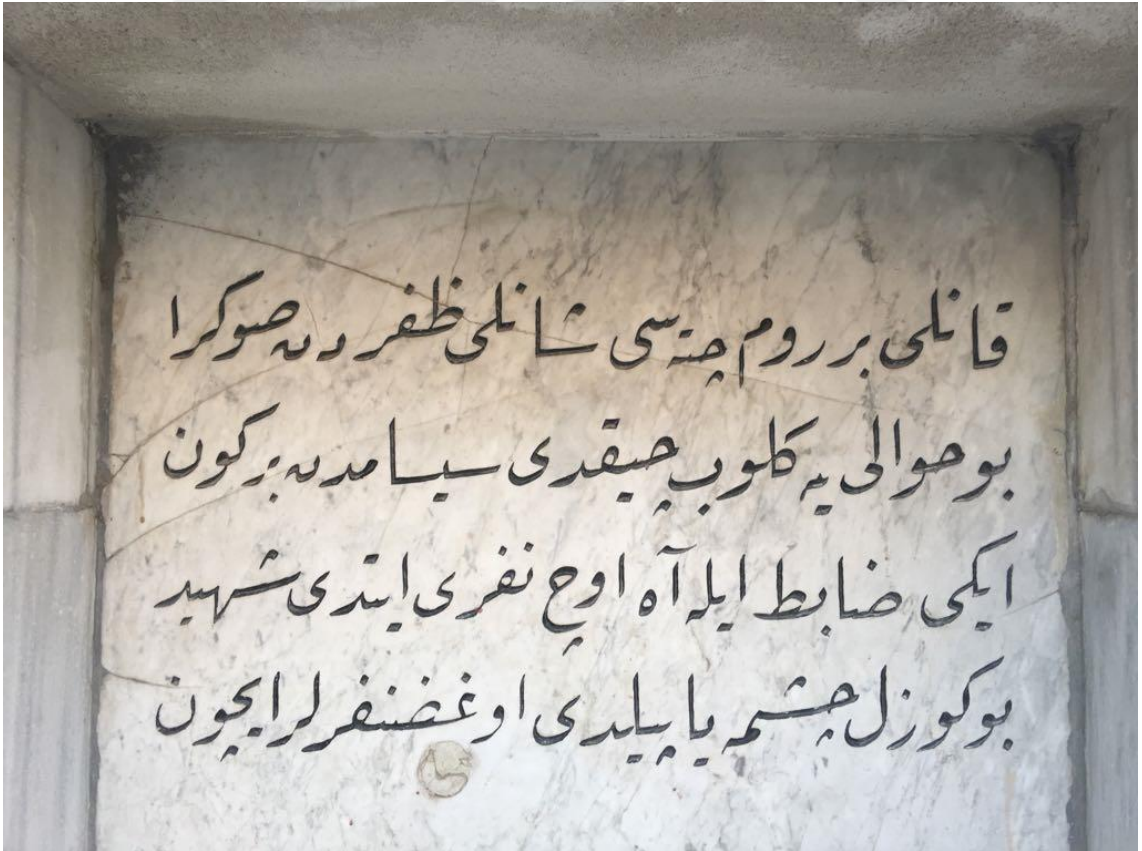 قانلی بر روم چته‌سی شانلی ظفردن صوکرا
بو حوالی یه کلوب چیقدی سیسامدن بر کون
ایکی ضابط ایله آه اوچ نفری ایتدی شهید
بو کوزل چشمه یاپیلدی او غضنفرلر ایچون